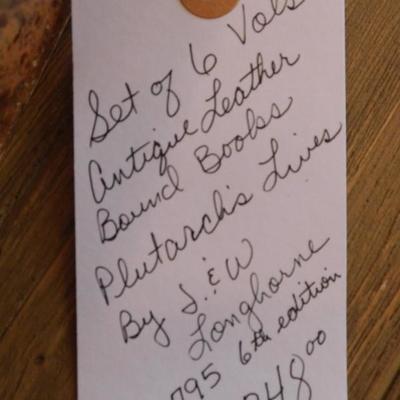 Set of 6 Vols
Antique Leather
Bound Books
Plutarch's Lives
By J. & W
Longhorne
795 6th edition
248⁰⁰